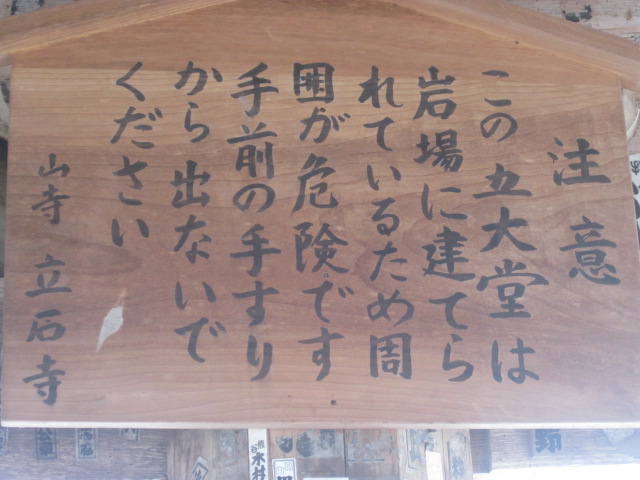 注意
この五大堂は
岩場に建てら
れているため周
囲が危険です
手前の手すり
から出ないで
ください
山寺 立石寺